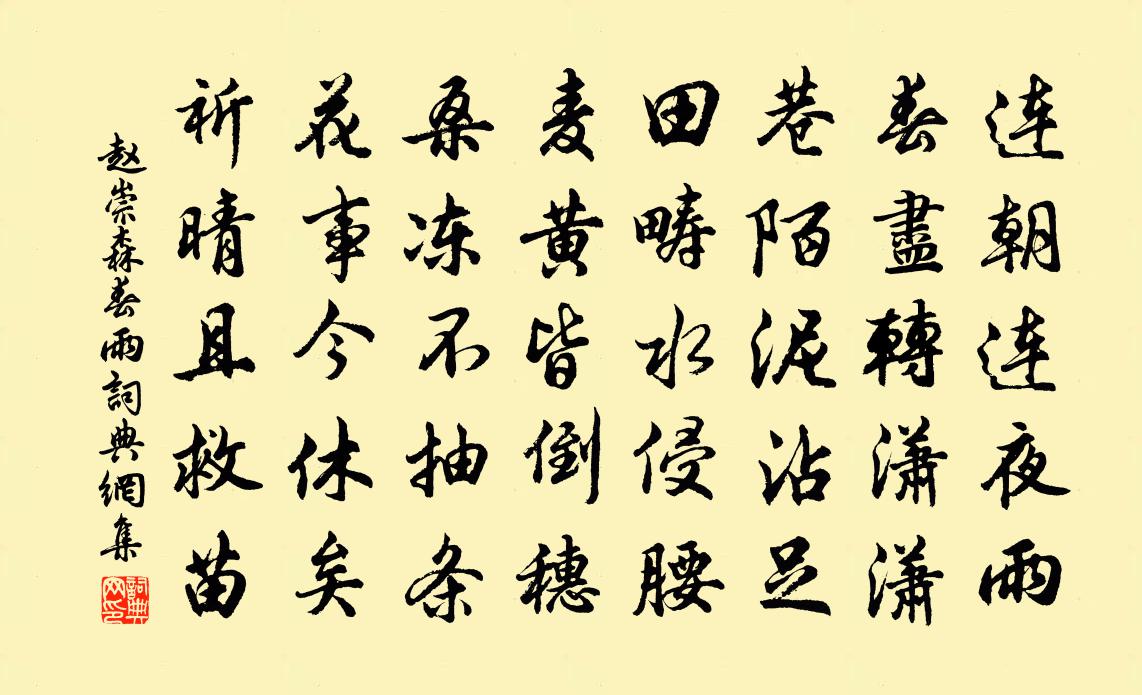 连朝连夜雨
春盡轉潇潇
巷陌泥沾足
田疇水侵腰
麦黄皆倒穗
桑冻不抽条
花事今休矣
祈晴且救苗
赵崇森春雨詞典網集
詞典网印